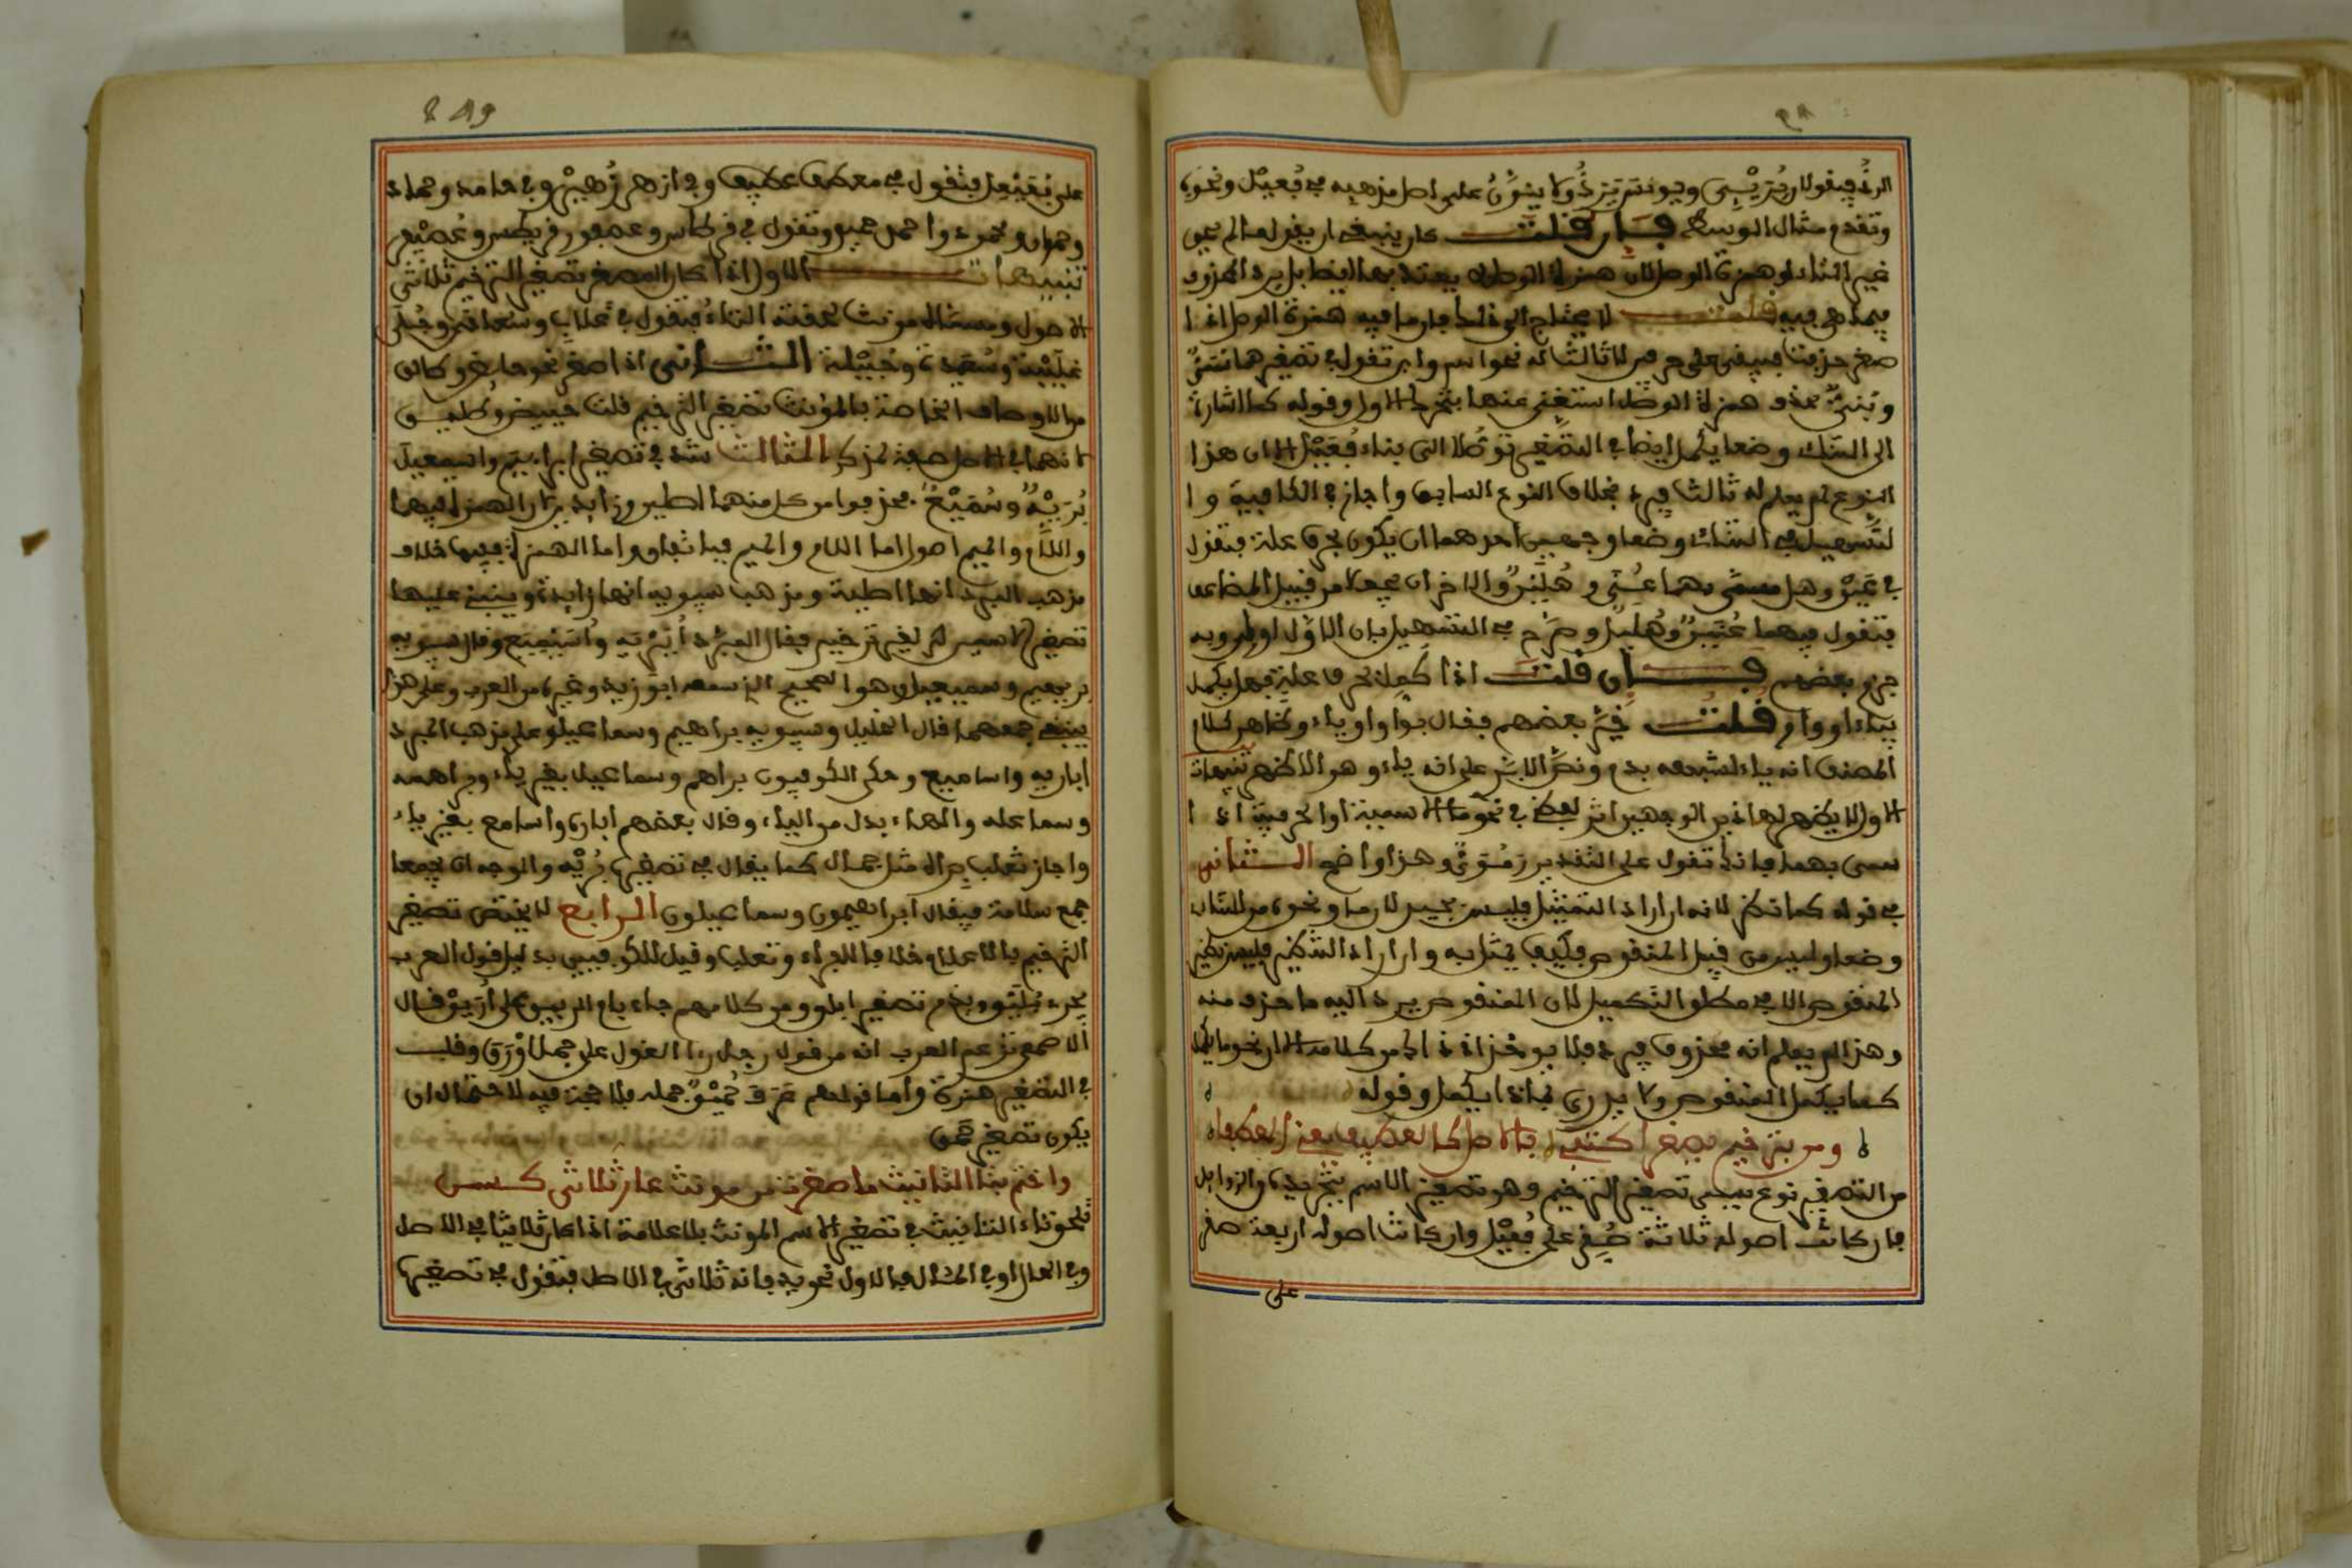 الرد فيقول يريئي ويونس يرده ولا ينون على اصل مذهبه في فعيل ونحوه
وتقدم مثال الوسط فان قلت كان ينبغي ان يقول ما لم يحو
غير التاء او همزة الوصل لان همزة الوصل لا يعتد بها ايضا بل يرد المحذوف
فيما هي فيه قلت لا يحتاج الى ذلك فان ما فيه همزة الوصل اذا
صغر حذفت فيبقى على حرفين لا ثالث له نحو اسم وابن تقول في تصغيرهما سمي
وبني بحذف همزة الوصل استغني عنها بتحريك الاول وقوله كما اشارة
الى الثنائي وضعا يكمل ايضا في التصغير توصلا الى بناء فعيل الا ان هذا
النوع لم يعلم له ثالث فيرد بخلاف النوع السابق واجاز في الكافية وا
لتسهيل في الثنائي وضعا وجهين احدهما ان يكون بحرف علة فتقول
في عن وهل مسمى بهما عني وهلي والاخر ان يجعلا من قبيل المضاعف
فتقول فيهما عنين وهليل وصرح في التسهيل بان الاول اولى وبه
جزم بعضهم فان قلت اذا كمل بحرف علة فهل يكمل
بياء او واو قلت خير بعضهم فقال بواو او ياء وظاهر كلام
المصنف انه ياء لشبهه بدم ونص الابدي على انه ياء وهو الاظهر تنبيهات
الاول لا يظهر لهاذين الوجهين اثر لفظي في نحو ما الاسمية او الحرفية اذا
سمي بهما فانك تقول على التقديرين موي وهذا واضح الثاني
في قوله كما نظر لانه ان اراد التمثيل فليس بجيد لان ما ونحوه من الثنائي
وضعا وليس من قبيل المنقوص فكيف يمثل به وان اراد التنظير فليس نظير
المنقوص الا في مطلق التكميل لان المنقوص يرد اليه ما حذف منه
وهذا لم يعلم انه محذوف فيرد فلا يوخذ اذ ذاك من كلامه الا ان نحو ما يكمل
كما يكمل المنقوص ولا يدرى بماذا يكمل وقوله
ومن بترخيم يصغر اكتفى بالاصل كالعطيف يعني المعطفا
من التصغير نوع يسمى تصغير الترخيم وهو تصغير الاسم بتجريده من الزوايد
فان كانت اصوله ثلاثة صغر على فعيل وان كانت اصوله اربعة صغر
على
على فعيعل فتقول في معطف عطيف وفي ازهر زهير وفي حامد وحماد
وحمدان ومحمود واحمد حميد وتقول في قرطاس وعصفور قريطس وعصيفر
تنبيهات الاول اذا كان المصغر تصغير الترخيم ثلاثي
الاصول ومسماه مونث لحقته التاء فتقول في غلاب وسعاد وحبلى
غليبة وسعيدة وحبيلة الثاني اذا صغر نحو حايض وطالق
من الاوصاف الخاصة بالمؤنث تصغير الترخيم قلت حييض وطليق
لانهما في الاصل صفة لمذكر الثالث شذ في تصغير ابراهيم واسمعيل
بريه وسميع فحذفوا من كل منهما اصلين وزايدين لان الهمزة فيهما
واللام والميم اصول اما اللام والميم فباتفاق واما الهمزة ففيها خلاف
مذهب المبرد انها اصلية ومذهب سيبويه انها زايدة وينبني عليهما
تصغير الاسمين لغير ترخيم فقال المبرد ابيريه واسيميع وقال سيبويه
بريهيم وسميعيل وهو الصحيح الذي سمعه ابو زيد وغيره من العرب وعلى هذا
ينبني جمعهما قال الخليل وسيبويه براهيم وسماعيل وعلى مذهب المبرد
اباريه واساميع وحكى الكوفيون براهم وسماعل بغير ياء وبراهمه
وسماعله والهاء بدل من الياء وقال بعضهم ابارة واسامع بغير ياء
واجاز ثعلب براه مثل جمال كما يقال في تصغيره بريه والوجه ان يجمعا
جمع سلامة فيقال ابراهيمون وسماعيلون الرابع لا يختص تصغير
الترخيم بالاعلام خلافا للفراء وثعلب وقيل للكوفيين بدليل قول العرب
يجري بليق ويذم تصغير ابلق ومن كلامهم جاء بام الربيق على اريق قال
الاصمعي تزعم العرب انه من قول رجل راى الغول على جمل اورق وقلبت
في التصغير همزة واما قولهم عرف حميق جمله فلا حجة فيه لاحتمال ان
يكون تصغير حمق
واختم بتا التانيث ما صغرت من مونث عار ثلاثي كسن
تلحق تاء التانيث في تصغير الاسم المونث بلا علامة اذا كان ثلاثيا في الاصل
وفي الحال او في الاصل فالاول نحو يد فانه ثلاثي في الاصل فتقول في تصغيرها